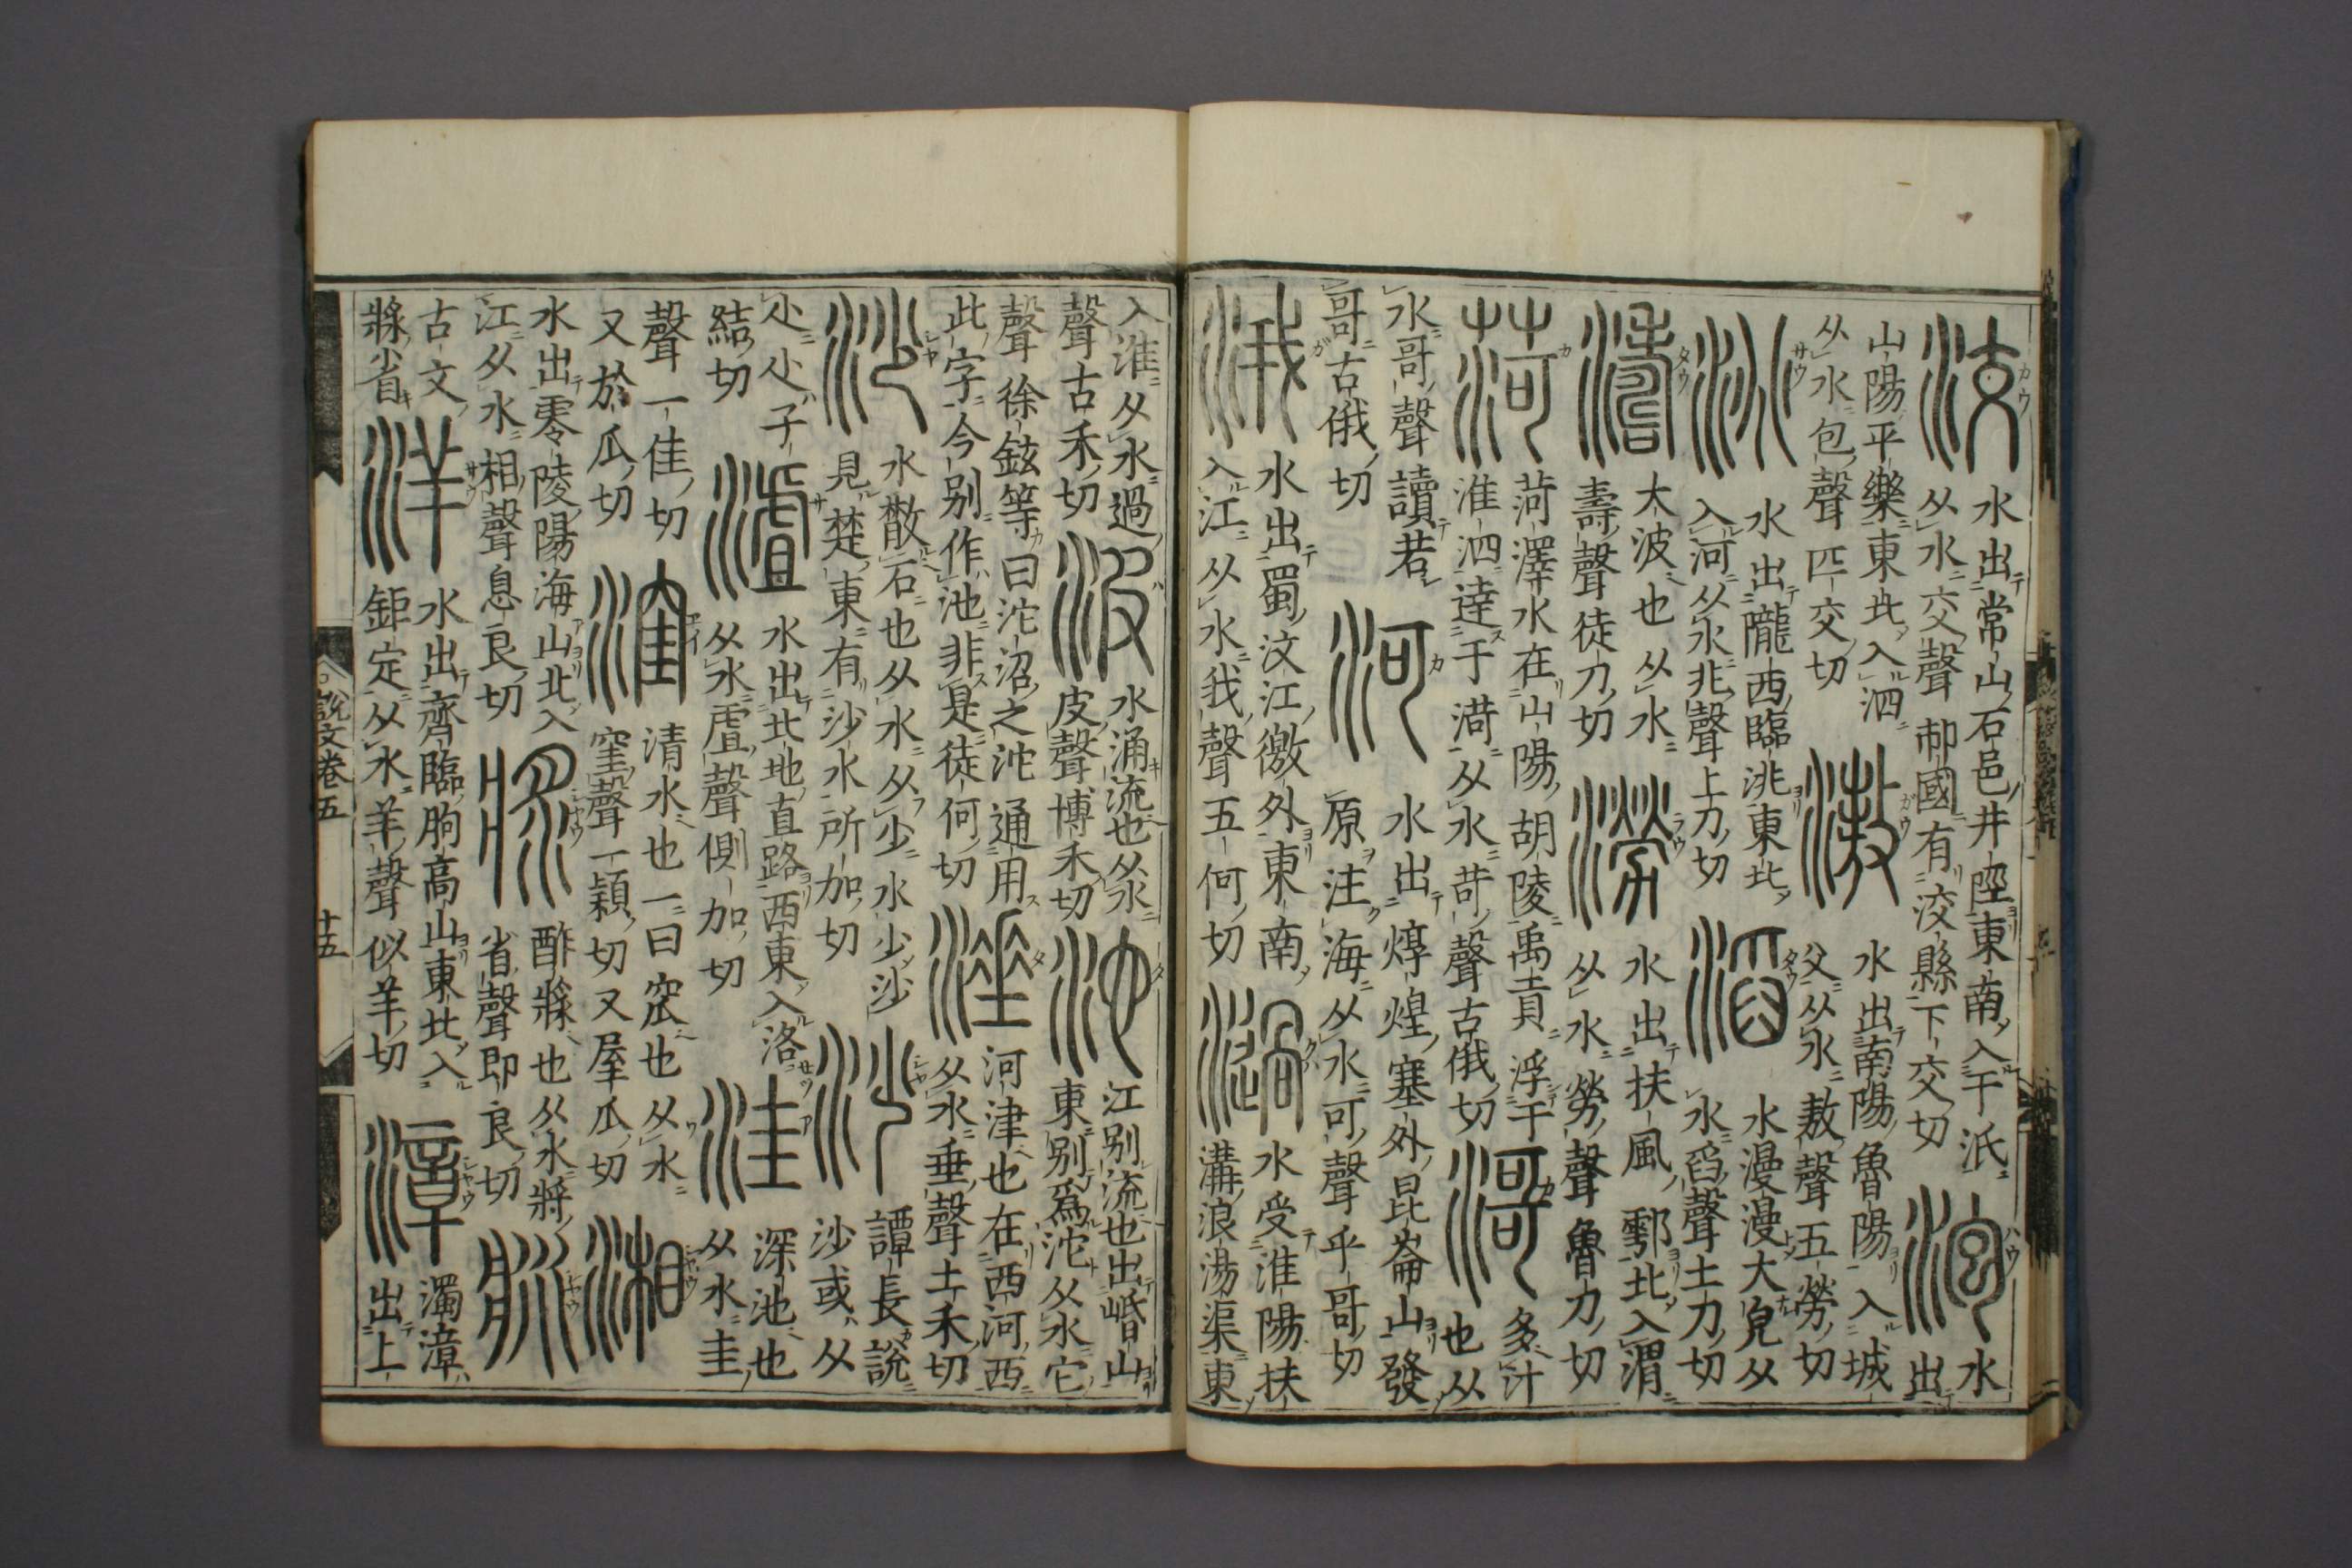 洨
水出常山石邑井陘東南入于泜
从水交聲 祁國有洨縣下交切
泡
水
出
山陽平樂東北入泗
从水包聲 匹交切
滶
水出南陽魯陽入城
父从水敖聲五勞切
洮
水出隴西臨洮東北
入河从水兆聲上刀切
滔
水漫漫大皃从
水舀聲土刀切
濤
大波也从水
壽聲徒刀切
澇
水出扶風鄠北入渭
从水勞聲魯刀切
菏
菏澤水在山陽胡陵禹貢浮于
淮泗達于菏从水苛聲古俄切
滒
多汁
也从
水哥聲讀若
哥古俄切
河
水出焞煌塞外昆崙山發
原注海从水可聲乎哥切
涐
水出蜀汶江徼外東南
入江从水我聲五何切
濄
水受淮陽扶
溝浪湯渠東
入淮从水過
聲古禾切
波
水涌流也从水
皮聲博禾切
沱
江别流也出㟭山
東别爲沱从水它
聲 徐鉉等曰沱沼之沱通用
此字今别作池非是徒何切
涶
河津也在西河西
从水垂聲土禾切
沙
水散石也从水从少水少沙
見楚東有沙水所加切
沙
譚長說
沙或从
尐尐子
結切
瀘
水出北地直路西東入洛
从水虘聲側加切
洼
深池也
从水圭
聲一佳切
又於瓜切
漥
清水也一曰窊也从水
窐聲一穎切又屋瓜切
湘
水出零陵陽海山北入
江从水相聲息良切
漿
酢漿也从水將
省聲即良切
古文
漿省
洋
水出齊臨朐高山東北入
鉅定从水羊聲似羊切
漳
濁漳
出上
說文卷五
十五